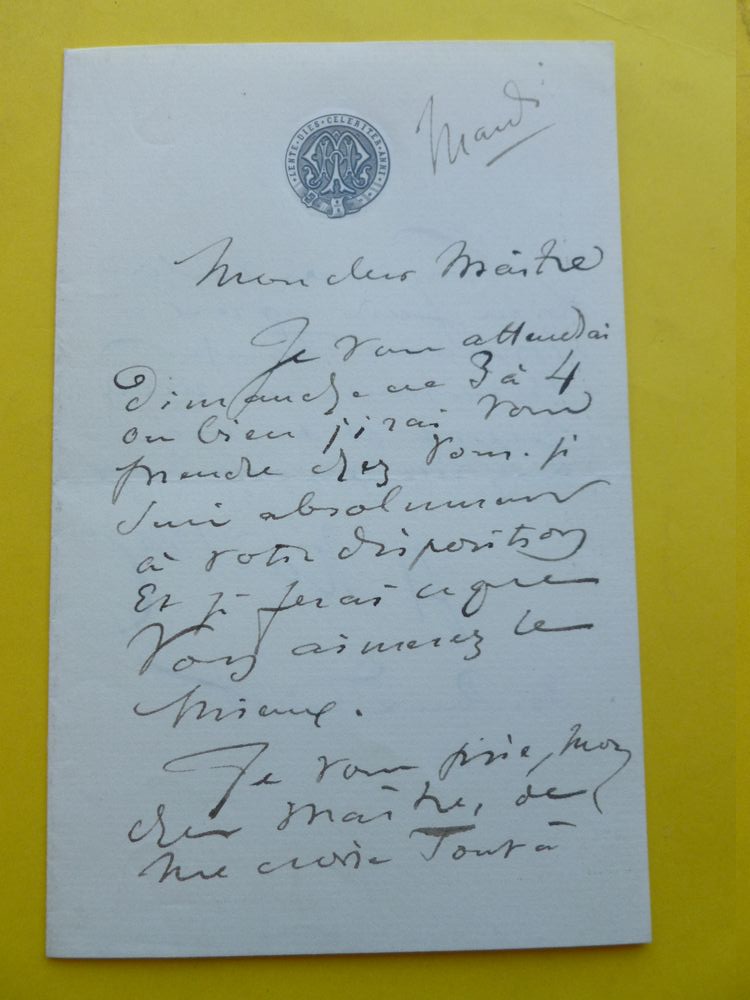 LENTE · DIES · CELERITER · ANNI
Mardi
Mon cher Maître
Je vous attendrai
Dimanche de 3 à 4
ou bien j'irai vous
prendre chez vous. je
suis absolument
à votre disposition
Et je ferai ce que
Vous aimerez le
Mieux.
Je vous prie, Mon
cher Maître, de
me croire Tout à